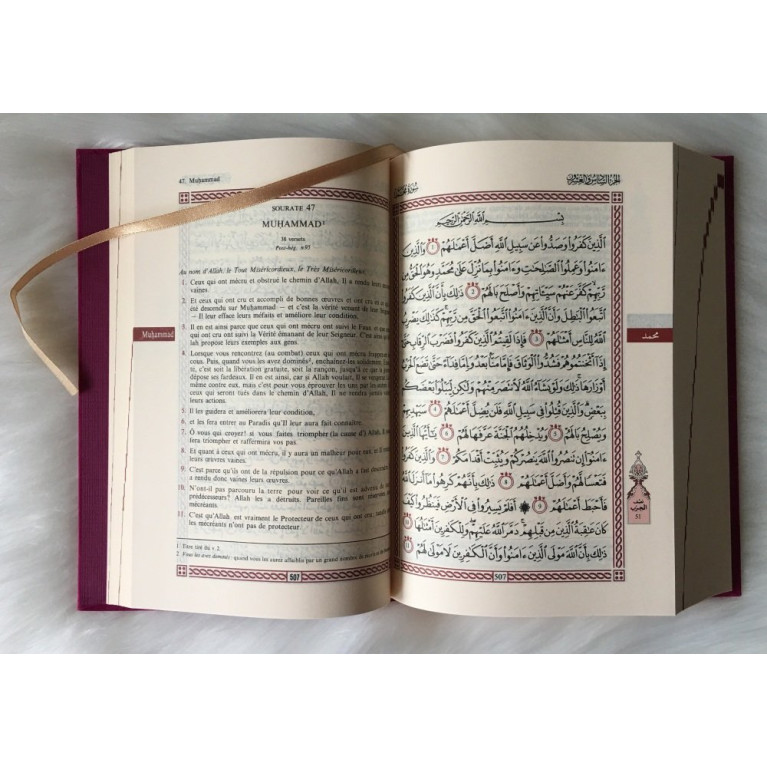 47. Muḥammad
SOURATE 47
MUḤAMMAD¹
38 versets
Post-hég. n°95
Au nom d'Allah, le Tout Miséricordieux, le Très Miséricordieux.
1. Ceux qui ont mécru et obstrué le chemin d'Allah, Il a rendu leurs œuvres
vaines.
2. Et ceux qui ont cru et accompli de bonnes œuvres et ont cru en ce qui a
été descendu sur Muḥammad — et c'est la vérité venant de leur Seigneur
— Il leur efface leurs méfaits et améliore leur condition.
3. Il en est ainsi parce que ceux qui ont mécru ont suivi le Faux et que ceux
qui ont cru ont suivi la Vérité émanant de leur Seigneur. C'est ainsi qu'Al-
lah propose leurs exemples aux gens.
4. Lorsque vous rencontrez (au combat) ceux qui ont mécru frappez-en les
cous. Puis, quand vous les avez dominés², enchaînez-les solidement. Ensui-
te, c'est soit la libération gratuite, soit la rançon, jusqu'à ce que la guerre
dépose ses fardeaux. Il en est ainsi, car si Allah voulait, Il se vengerait Lui-
même contre eux, mais c'est pour vous éprouver les uns par les autres. Et
ceux qui seront tués dans le chemin d'Allah, Il ne rendra jamais vaines
leurs actions.
5. Il les guidera et améliorera leur condition,
6. et les fera entrer au Paradis qu'Il leur aura fait connaître.
7. Ô vous qui croyez! si vous faites triompher (la cause d') Allah, Il vous
fera triompher et raffermira vos pas.
8. Et quant à ceux qui ont mécru, il y aura un malheur pour eux, et Il rendra
leurs œuvres vaines.
9. C'est parce qu'ils ont de la répulsion pour ce qu'Allah a fait descendre. Il
a rendu donc vaines leurs œuvres.
10. N'ont-il pas parcouru la terre pour voir ce qu'il est advenu de leurs
prédécesseurs? Allah les a détruits. Pareilles fins sont réservées aux
mécréants.
11. C'est qu'Allah est vraiment le Protecteur de ceux qui ont cru, tandis que
les mécréants n'ont pas de protecteur.
1 Titre tiré du v. 2.
2 Vous les avez dominés: quand vous les aurez affaiblis par un grand nombre de
507
Muḥammad
الجزء السادس والعشرون
سورة محمد
بِسْمِ اللَّهِ الرَّحْمَٰنِ الرَّحِيمِ
الَّذِينَ كَفَرُوا وَصَدُّوا عَن سَبِيلِ اللَّهِ أَضَلَّ أَعْمَالَهُمْ ۝١ وَالَّذِينَ
ءَامَنُوا وَعَمِلُوا الصَّالِحَاتِ وَءَامَنُوا بِمَا نُزِّلَ عَلَىٰ مُحَمَّدٍ وَهُوَ الْحَقُّ مِن
رَّبِّهِمْ كَفَّرَ عَنْهُمْ سَيِّئَاتِهِمْ وَأَصْلَحَ بَالَهُمْ ۝٢ ذَٰلِكَ بِأَنَّ الَّذِينَ كَفَرُوا
اتَّبَعُوا الْبَاطِلَ وَأَنَّ الَّذِينَ ءَامَنُوا اتَّبَعُوا الْحَقَّ مِن رَّبِّهِمْ كَذَٰلِكَ يَضْرِبُ
اللَّهُ لِلنَّاسِ أَمْثَالَهُمْ ۝٣ فَإِذَا لَقِيتُمُ الَّذِينَ كَفَرُوا فَضَرْبَ الرِّقَابِ حَتَّىٰ
إِذَا أَثْخَنتُمُوهُمْ فَشُدُّوا الْوَثَاقَ فَإِمَّا مَنًّا بَعْدُ وَإِمَّا فِدَاءً حَتَّىٰ تَضَعَ الْحَرْبُ
أَوْزَارَهَا ذَٰلِكَ وَلَوْ يَشَاءُ اللَّهُ لَانتَصَرَ مِنْهُمْ وَلَٰكِن لِّيَبْلُوَ بَعْضَكُم
بِبَعْضٍ وَالَّذِينَ قُتِلُوا فِي سَبِيلِ اللَّهِ فَلَن يُضِلَّ أَعْمَالَهُمْ ۝٤ سَيَهْدِيهِمْ
وَيُصْلِحُ بَالَهُمْ ۝٥ وَيُدْخِلُهُمُ الْجَنَّةَ عَرَّفَهَا لَهُمْ ۝٦ يَا أَيُّهَا الَّذِينَ
ءَامَنُوا إِن تَنصُرُوا اللَّهَ يَنصُرْكُمْ وَيُثَبِّتْ أَقْدَامَكُمْ ۝٧ وَالَّذِينَ كَفَرُوا
فَتَعْسًا لَّهُمْ وَأَضَلَّ أَعْمَالَهُمْ ۝٨ ذَٰلِكَ بِأَنَّهُمْ كَرِهُوا مَا أَنزَلَ اللَّهُ
فَأَحْبَطَ أَعْمَالَهُمْ ۝٩ ۞ أَفَلَمْ يَسِيرُوا فِي الْأَرْضِ فَيَنظُرُوا كَيْفَ
كَانَ عَاقِبَةُ الَّذِينَ مِن قَبْلِهِمْ دَمَّرَ اللَّهُ عَلَيْهِمْ وَلِلْكَافِرِينَ أَمْثَالُهَا ۝١٠
ذَٰلِكَ بِأَنَّ اللَّهَ مَوْلَى الَّذِينَ ءَامَنُوا وَأَنَّ الْكَافِرِينَ لَا مَوْلَىٰ لَهُمْ ۝١١
507
محمد
نصف
الحزب
51